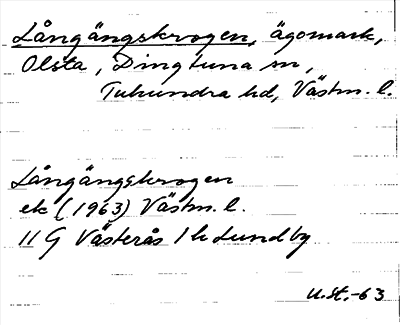 Långängskrogen, ägomark,
Olsta, Dingtuna sn,
Tuhundra hd, Västm. l.
Långängskrogen
ek (1963) Västm. l.
11 G Västerås 1 h Lundby
U.St.-63